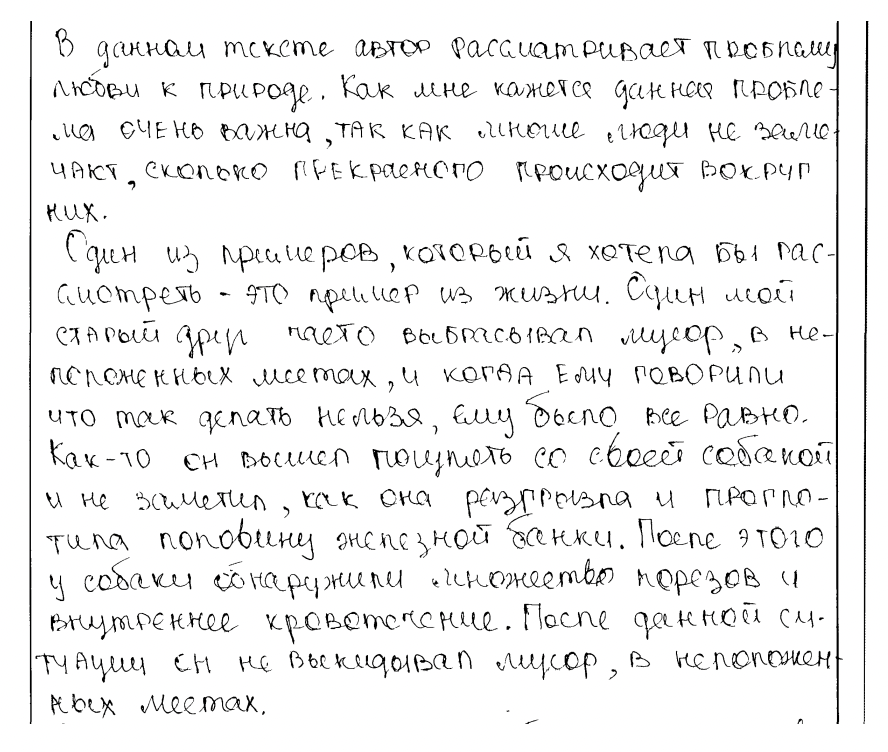 В данном тексте автор рассматривает проблему
любви к природе. Как мне кажется данная пробле-
ма очень важна, так как многие люди не заме-
чают, сколько прекрасного происходит вокруг
них.
Один из примеров, который я хотела бы рас-
смотреть - это пример из жизни. Один мой
старый друг часто выбрасывал мусор, в не-
положенных местах, и когда ему говорили
что так делать нельзя, ему было все равно.
Как-то он вышел погулять со своей собакой
и не заметил, как она разгрызла и прогло-
тила половину железной банки. После этого
у собаки обнаружили множество порезов и
внутреннее кровотечение. После данной си-
туации он не выкидывал мусор, в неположен-
ных местах.